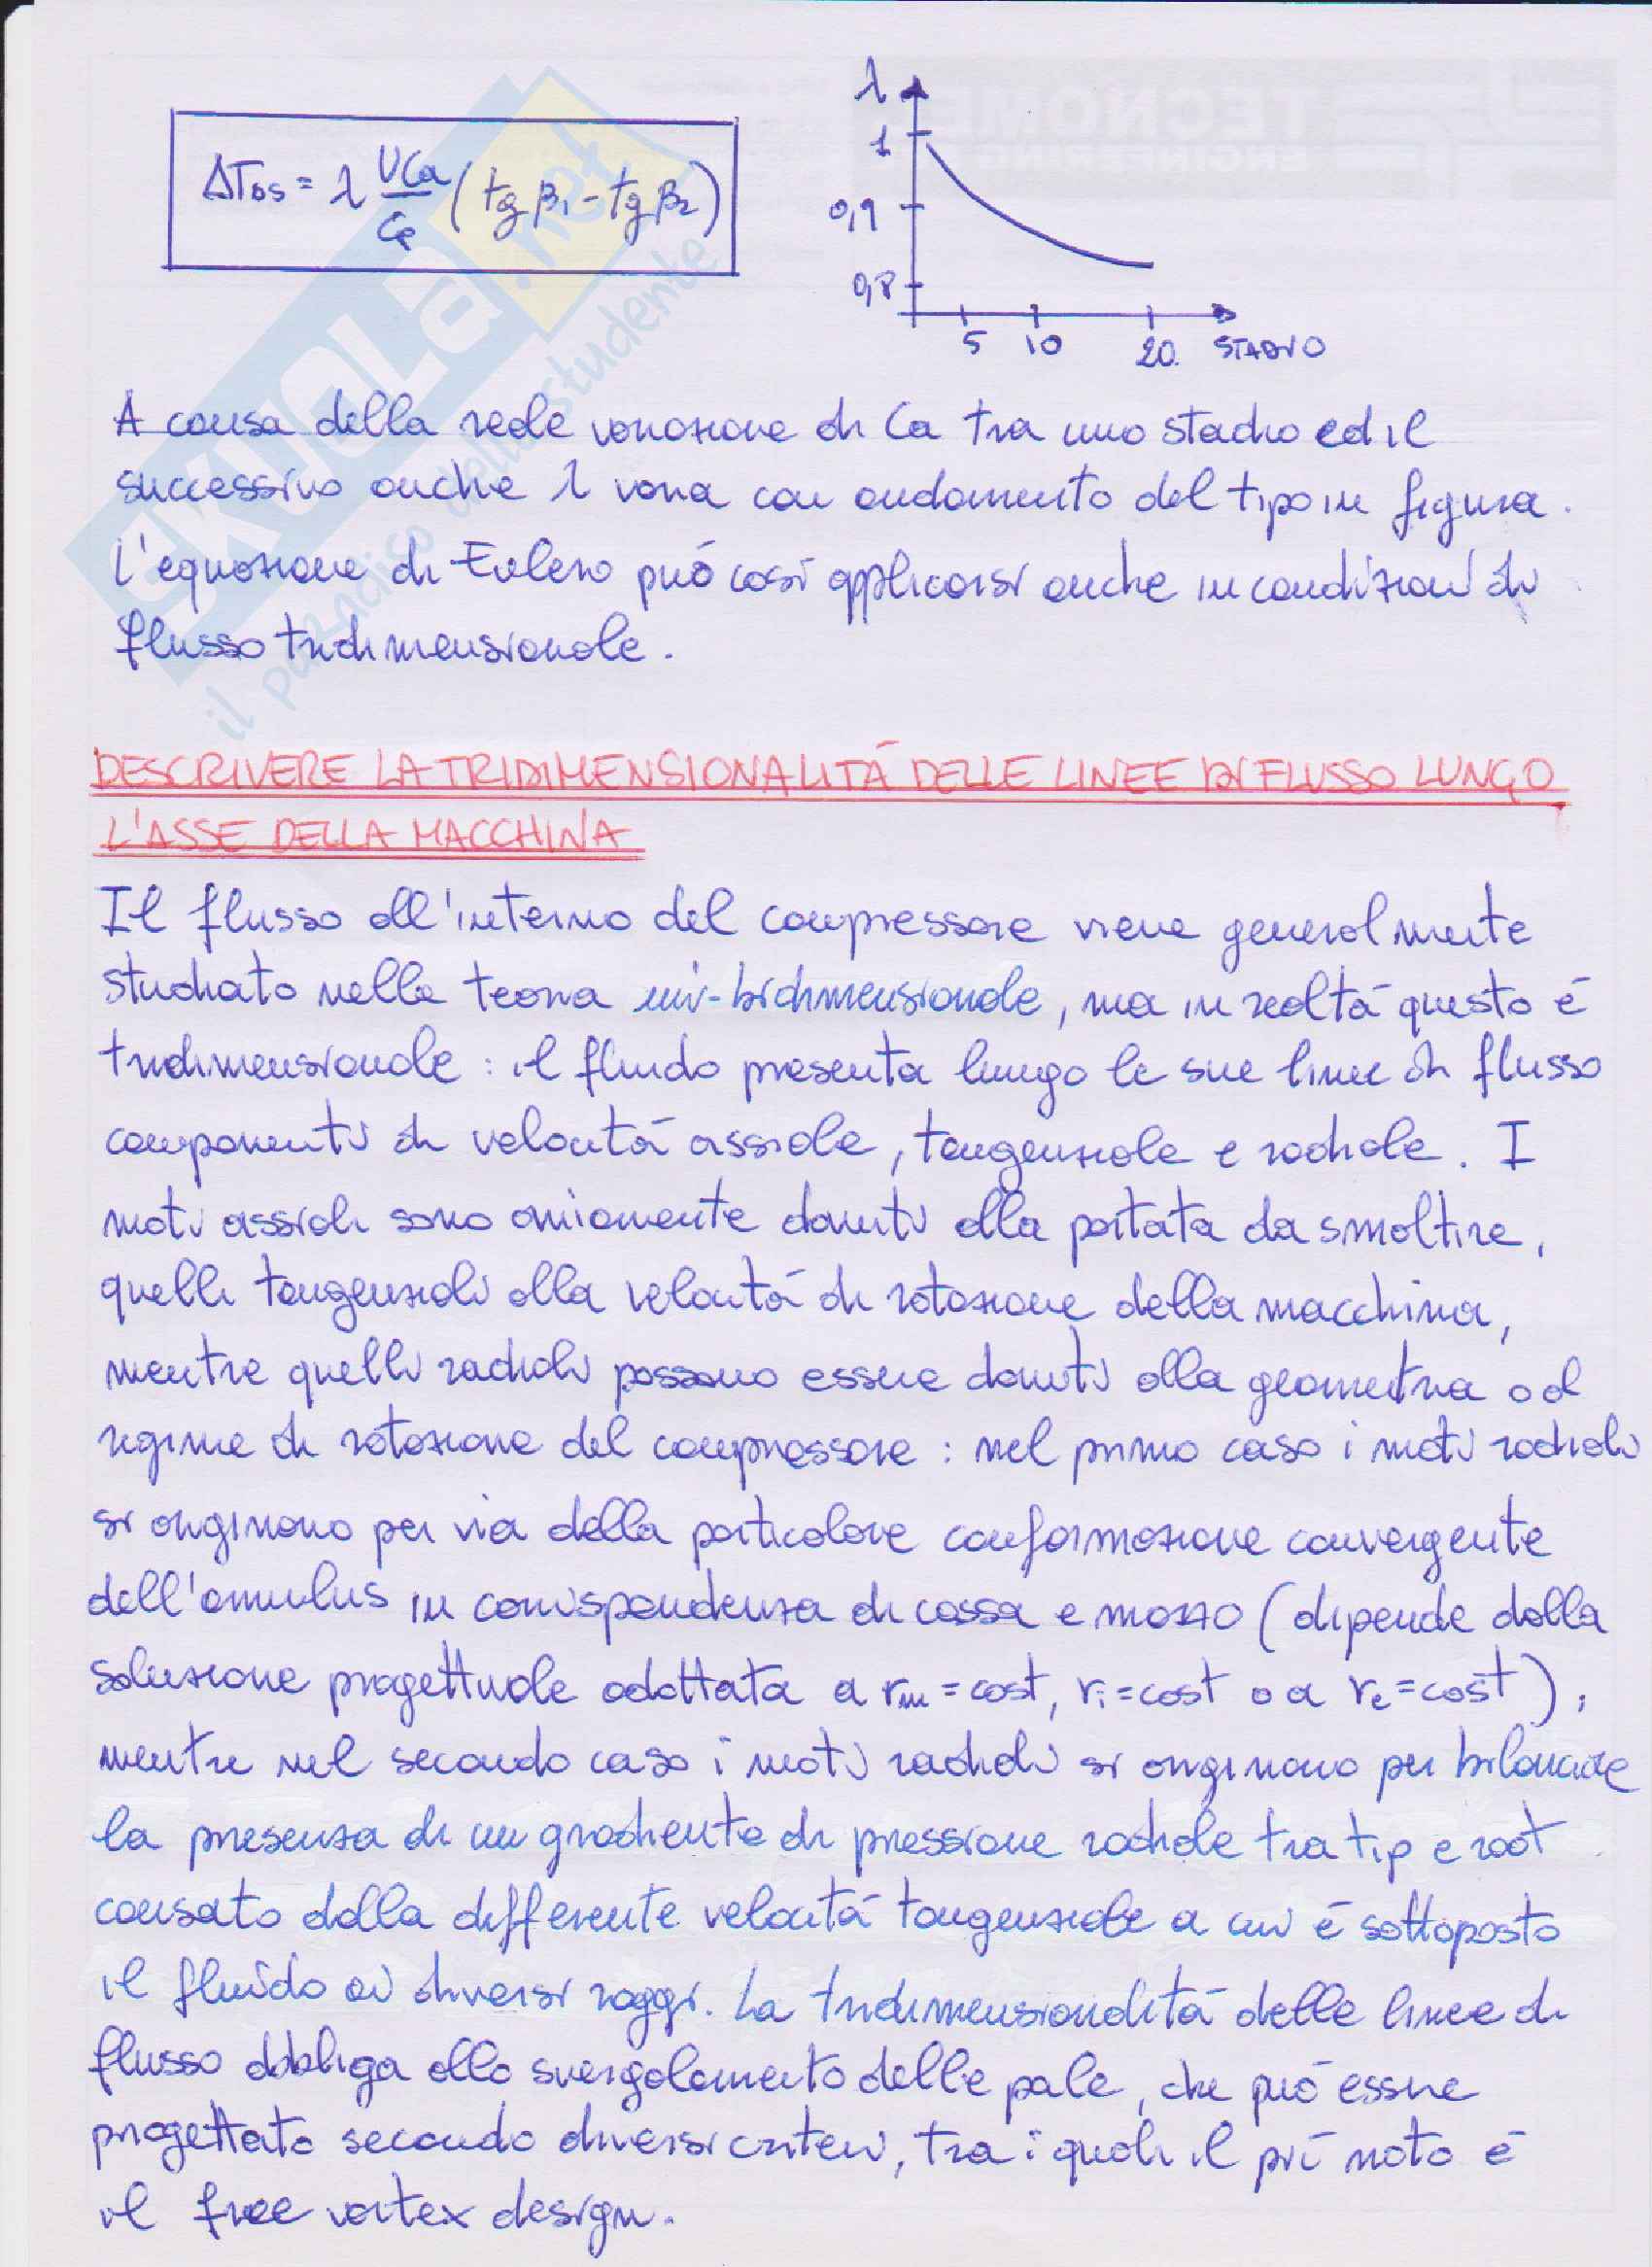 ΔT0s = λ UCa/Cp (tg β1 - tg β2)
λ
1
0,9
0,8
5 10 20 STADIO
A causa della reale variazione di Ca tra uno stadio ed il
successivo anche λ varia con andamento del tipo in figura.
L'equazione di Eulero può così applicarsi anche in condizioni di
flusso tridimensionale.
DESCRIVERE LA TRIDIMENSIONALITÀ DELLE LINEE DI FLUSSO LUNGO
L'ASSE DELLA MACCHINA
Il flusso all'interno del compressore viene generalmente
studiato nella teoria uni-bidimensionale, ma in realtà questo è
tridimensionale: il fluido presenta lungo le sue linee di flusso
componenti di velocità assiale, tangenziale e radiale. I
moti assiali sono ovviamente dovuti alla portata da smaltire,
quelli tangenziali alla velocità di rotazione della macchina,
mentre quelli radiali possono essere dovuti alla geometria o al
regime di rotazione del compressore: nel primo caso i moti radiali
si originano per via della particolare conformazione convergente
dell'annulus in corrispondenza di cassa e mozzo (dipende dalla
soluzione progettuale adottata a rm=cost, ri=cost o a re=cost),
mentre nel secondo caso i moti radiali si originano per bilanciare
la presenza di un gradiente di pressione radiale tra tip e root
causato dalla differente velocità tangenziale a cui è sottoposto
il fluido ai diversi raggi. La tridimensionalità delle linee di
flusso obbliga allo svergolamento delle pale, che può essere
progettato secondo diversi criteri, tra i quali il più noto è
il free vortex design.
SKUOLA.net
il paradiso dello studente
TECNOME